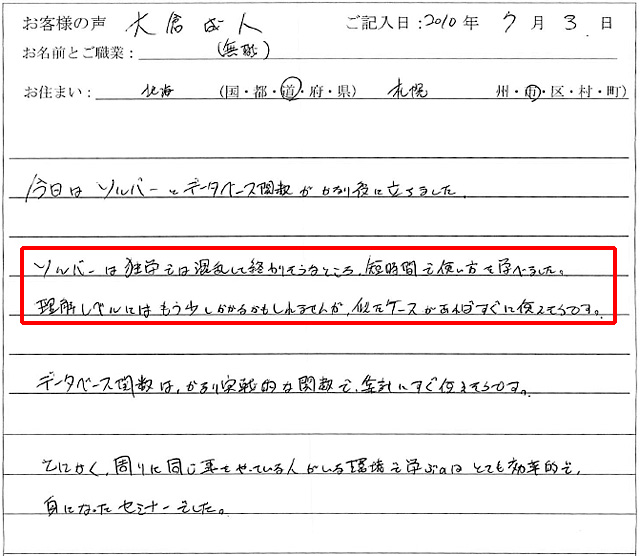 お客様の声 大倉成人 ご記入日:2010年 7月 3日
お名前とご職業: (無職)
お住まい: 北海 (国・都・道・府・県) 札幌 州・市・区・村・町)
今日は ソルバーと データベース関数が かなり役に立ちました。
ソルバーは 独学では混乱して終わりそうなところ、短時間で使い方を学べました。
理解レベルにはもう少しかかるかもしれませんが、似たケースがあればすぐに使えそうです。
データベース関数は、かなり実戦的な関数で、集計にすぐ使えそうです。
とにかく、周りに同じ事をやっている人がいる環境で学ぶのはとても効率的で、
身になったセミナーでした。